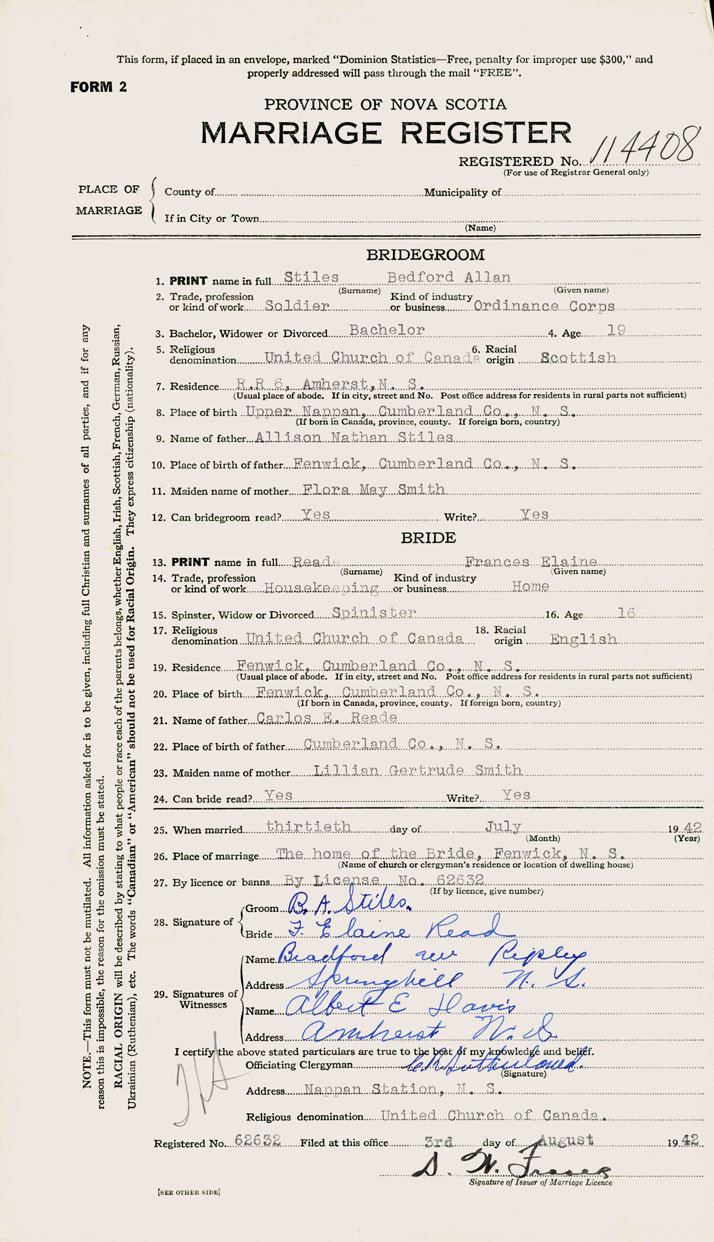 This form, if placed in an envelope, marked “Dominion Statistics—Free, penalty for improper use $300,” and
properly addressed will pass through the mail “FREE”.
FORM 2
PROVINCE OF NOVA SCOTIA
MARRIAGE REGISTER
REGISTERED No. 114408
(For use of Registrar General only)
PLACE OF MARRIAGE
County of Municipality of
If in City or Town
(Name)
BRIDEGROOM
1. PRINT name in full Stiles Bedford Allan
(Surname) (Given name)
2. Trade, profession or kind of work Soldier Kind of industry or business Ordinance Corps
3. Bachelor, Widower or Divorced Bachelor 4. Age 19
5. Religious denomination United Church of Canada 6. Racial origin Scottish
7. Residence R.R 6, Amherst, N. S.
(Usual place of abode. If in city, street and No. Post office address for residents in rural parts not sufficient)
8. Place of birth Upper Nappan, Cumberland Co., N. S.
(If born in Canada, province, county. If foreign born, country)
9. Name of father Allison Nathan Stiles
10. Place of birth of father Fenwick, Cumberland Co., N. S.
11. Maiden name of mother Flora May Smith
12. Can bridegroom read? Yes Write? Yes
BRIDE
13. PRINT name in full Reade Frances Elaine
(Surname) (Given name)
14. Trade, profession or kind of work Housekeeping Kind of industry or business Home
15. Spinster, Widow or Divorced Spinister 16. Age 16
17. Religious denomination United Church of Canada 18. Racial origin English
19. Residence Fenwick, Cumberland Co., N. S.
(Usual place of abode. If in city, street and No. Post office address for residents in rural parts not sufficient)
20. Place of birth Fenwick, Cumberland Co., N. S.
(If born in Canada, province, county. If foreign born, country)
21. Name of father Carlos E. Reade
22. Place of birth of father Cumberland Co., N. S.
23. Maiden name of mother Lillian Gertrude Smith
24. Can bride read? Yes Write? Yes
25. When married thirtieth day of July 1942
(Month) (Year)
26. Place of marriage The home of the Bride, Fenwick, N. S.
(Name of church or clergyman's residence or location of dwelling house)
27. By licence or banns By License No. 62632
(If by licence, give number)
28. Signature of
Groom B. A. Stiles.
Bride F. Elaine Read
29. Signatures of Witnesses
Name Bradford Ripley
Address Springhill N. S.
Name Albert E Davis
Address Amherst N. S
I certify the above stated particulars are true to the best of my knowledge and belief.
Officiating Clergyman
(Signature)
Address Nappan Station, N. S.
Religious denomination United Church of Canada.
Registered No. 62632 Filed at this office 3rd day of August 1942
Signature of Issuer of Marriage Licence
[SEE OTHER SIDE]
NOTE.—This form must not be mutilated. All information asked for is to be given, including full Christian and surnames of all parties, and if for any
reason this is impossible, the reason for the omission must be stated.
RACIAL ORIGIN will be described by stating to what people or race each of the parents belongs, whether English, Irish, Scottish, French, German, Russian,
Ukrainian (Ruthenian), etc. The words “Canadian” or “American” should not be used for Racial Origin. They express citizenship (nationality).